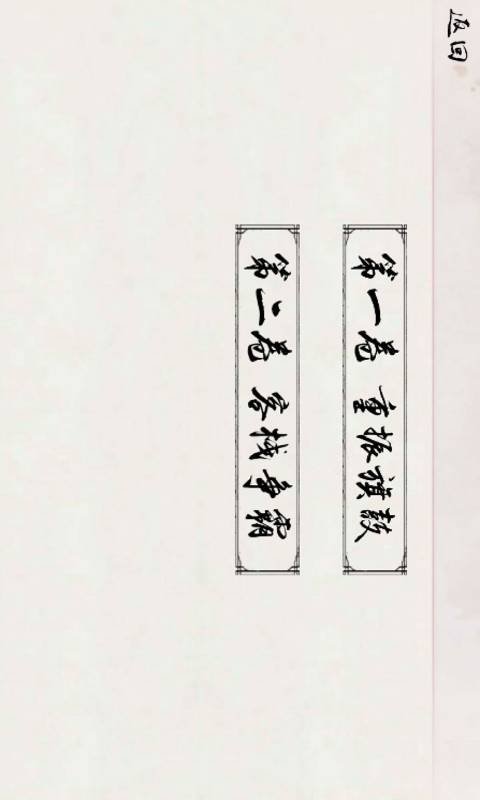 返回
第一卷 重振旗鼓
第二卷 客栈争霸